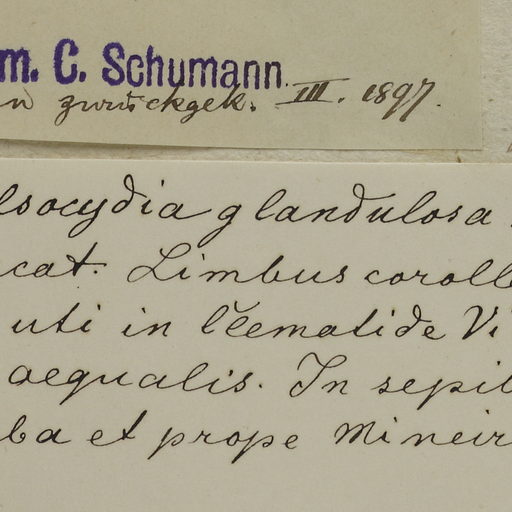 m. C. Schumann
n zurückgek. III. 1897.
lsocydia glandulosa
cat. Limbus coroll
uti in Clematide Vi
aequalis. In sepi
ba et prope Mineir